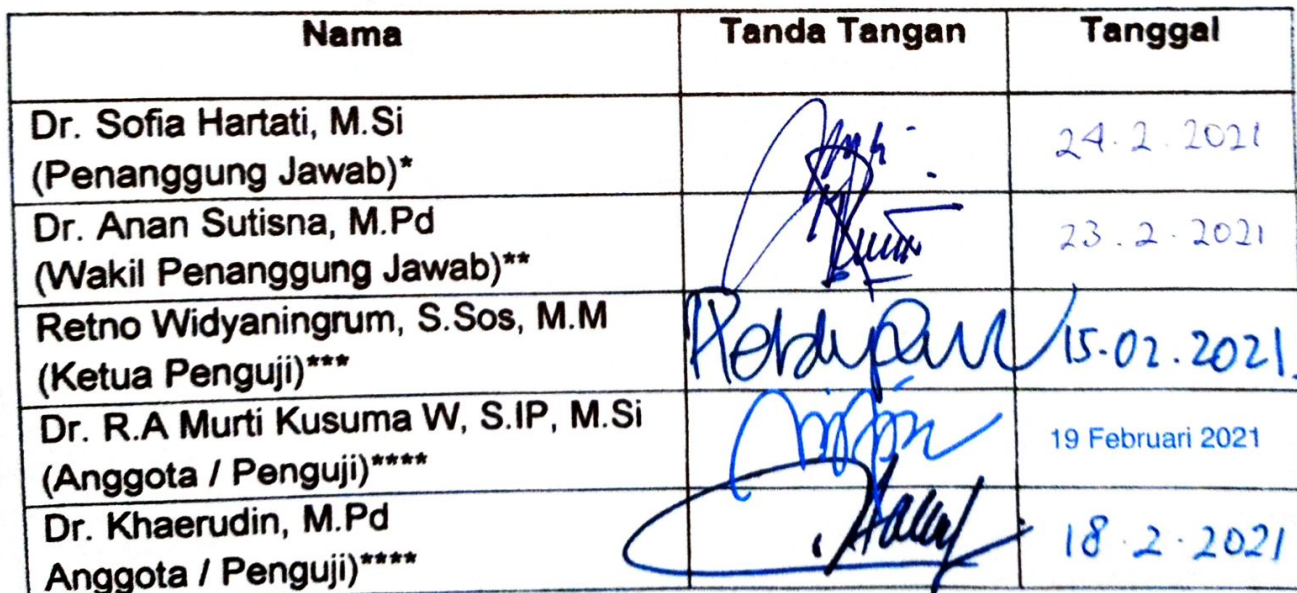 Nama Tanda Tangan Tanggal
Dr. Sofia Hartati, M.Si
(Penanggung Jawab)*
24.2.2021
Dr. Anan Sutisna, M.Pd
(Wakil Penanggung Jawab)**
23.2.2021
Retno Widyaningrum, S.Sos, M.M
(Ketua Penguji)***
15.02.2021.
Dr. R.A Murti Kusuma W, S.IP, M.Si
(Anggota / Penguji)****
19 Februari 2021
Dr. Khaerudin, M.Pd
Anggota / Penguji)****
18.2.2021